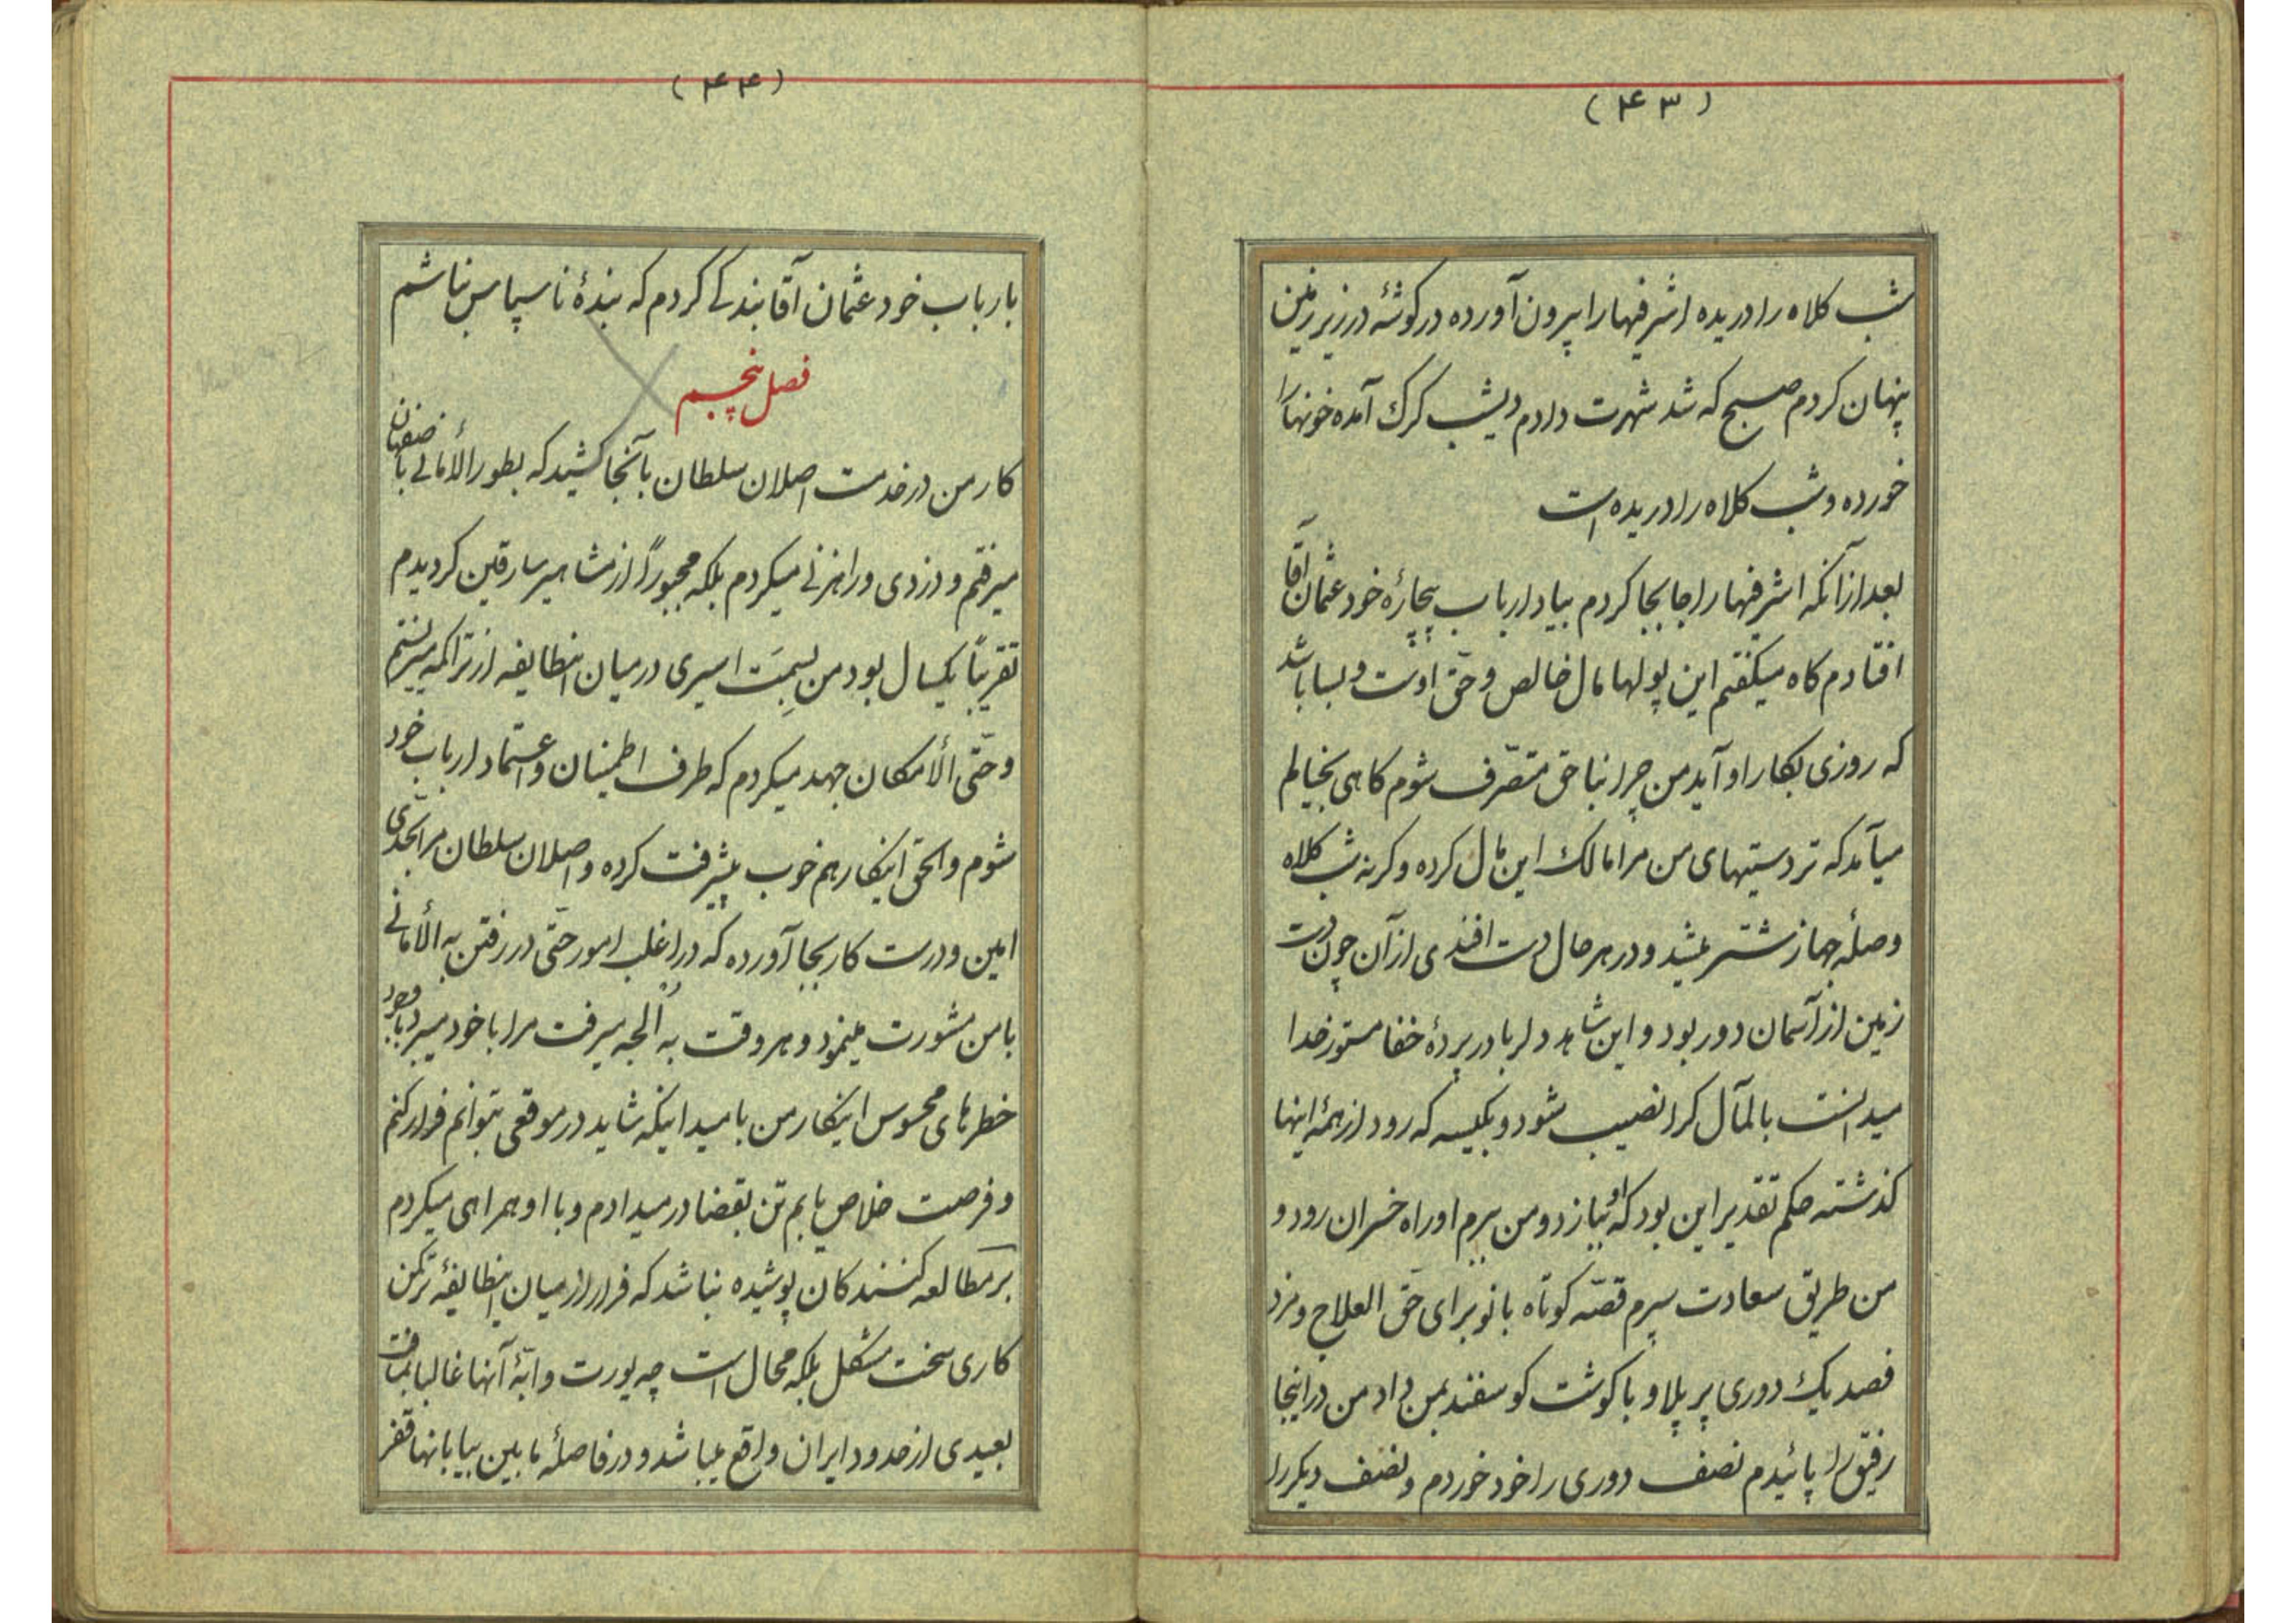 (۴۳)
شب کلاه را دریده اشرفیها را بیرون آورده در کوشهٔ در زیر زمین
پنهان کردم صبح که شد شهرت دادم دیشب کرک آمده خونها را
خورده و شب کلاه را دریده است
بعد از آنکه اشرفیها را جابجا کردم بیاد ارباب بیچارهٔ خود عثمان آقا
افتادم کاه میکفتم این پولها مال خالص و حقّ اوست و بسا باشد
که روزی بکار او آید من چرا بناحق متصّرف شوم کاهی بخیالم
میآمد که تردستیهای من مرا مالک این مال کرده و کرنه شب کلاه
وصلهٔ جهاز شتر میشد و در هر حال دست افندی از آن چون دست
زمین از آسمان دور بود و این شاهد دلربا در پردهٔ خفا مستور خدا
میدانست بالمآل کرا نصیب شود و بکیسه که رود از همهٔ اینها
کذشته حکم تقدیر این بود که او ببازد و من ببرم او راه خسران رود و
من طریق سعادت سپرم قصّه کوتاه بانو برای حقّ العلاج و مزد
فصد یک دوری پر پلاو با کوشت کوسفند بمن داد من در اینجا
رفیق را پائیدم نصف دوری را خود خوردم و نصف دیکر را
(۴۴)
بارباب خود عثمان آقا بندکی کردم که بندهٔ ناسپاس نباشم
فصل پنجم
کار من در خدمت اصلان سلطان بآنجا کشید که بطور الأمانی باصفهان
میرفتم و دزدی و راهزنی میکردم بلکه مجبوراً از مشاهیر سارقین کردیدم
تقریباً یکسال بود من بسِمَت اسیری در میان اینطایفه از تراکمه میزیستم
و حتّی الأمکان جهد میکردم که طرف اطمینان و اعتماد ارباب خود
شوم و الحق اینکار هم خوب پیشرفت کرده و اصلان سلطان مرا بحدّی
امین و درست کار بجا آورده که در اغلب امور حتّی در رفتن به الأمانی
با من مشورت مینمود و هر وقت به اُلجه میرفت مرا با خود میبرد با وجود
خطرهای محسوس اینکار من بامید اینکه شاید در موقعی بتوانم فرار کنم
و فرصت خلاص یابم تن بقضا در میدادم و با او همراهی میکردم
بر مطالعه کنندکان پوشیده نباشد که فرار از میان اینطایفهٔ ترکمن
کاری سخت مشکل بلکه محال است چه یورت و ابّهٔ آنها غالبا بمسافت
بعیدی از حدود ایران واقع میباشد و در فاصلهٔ مابین بیابانها قفر